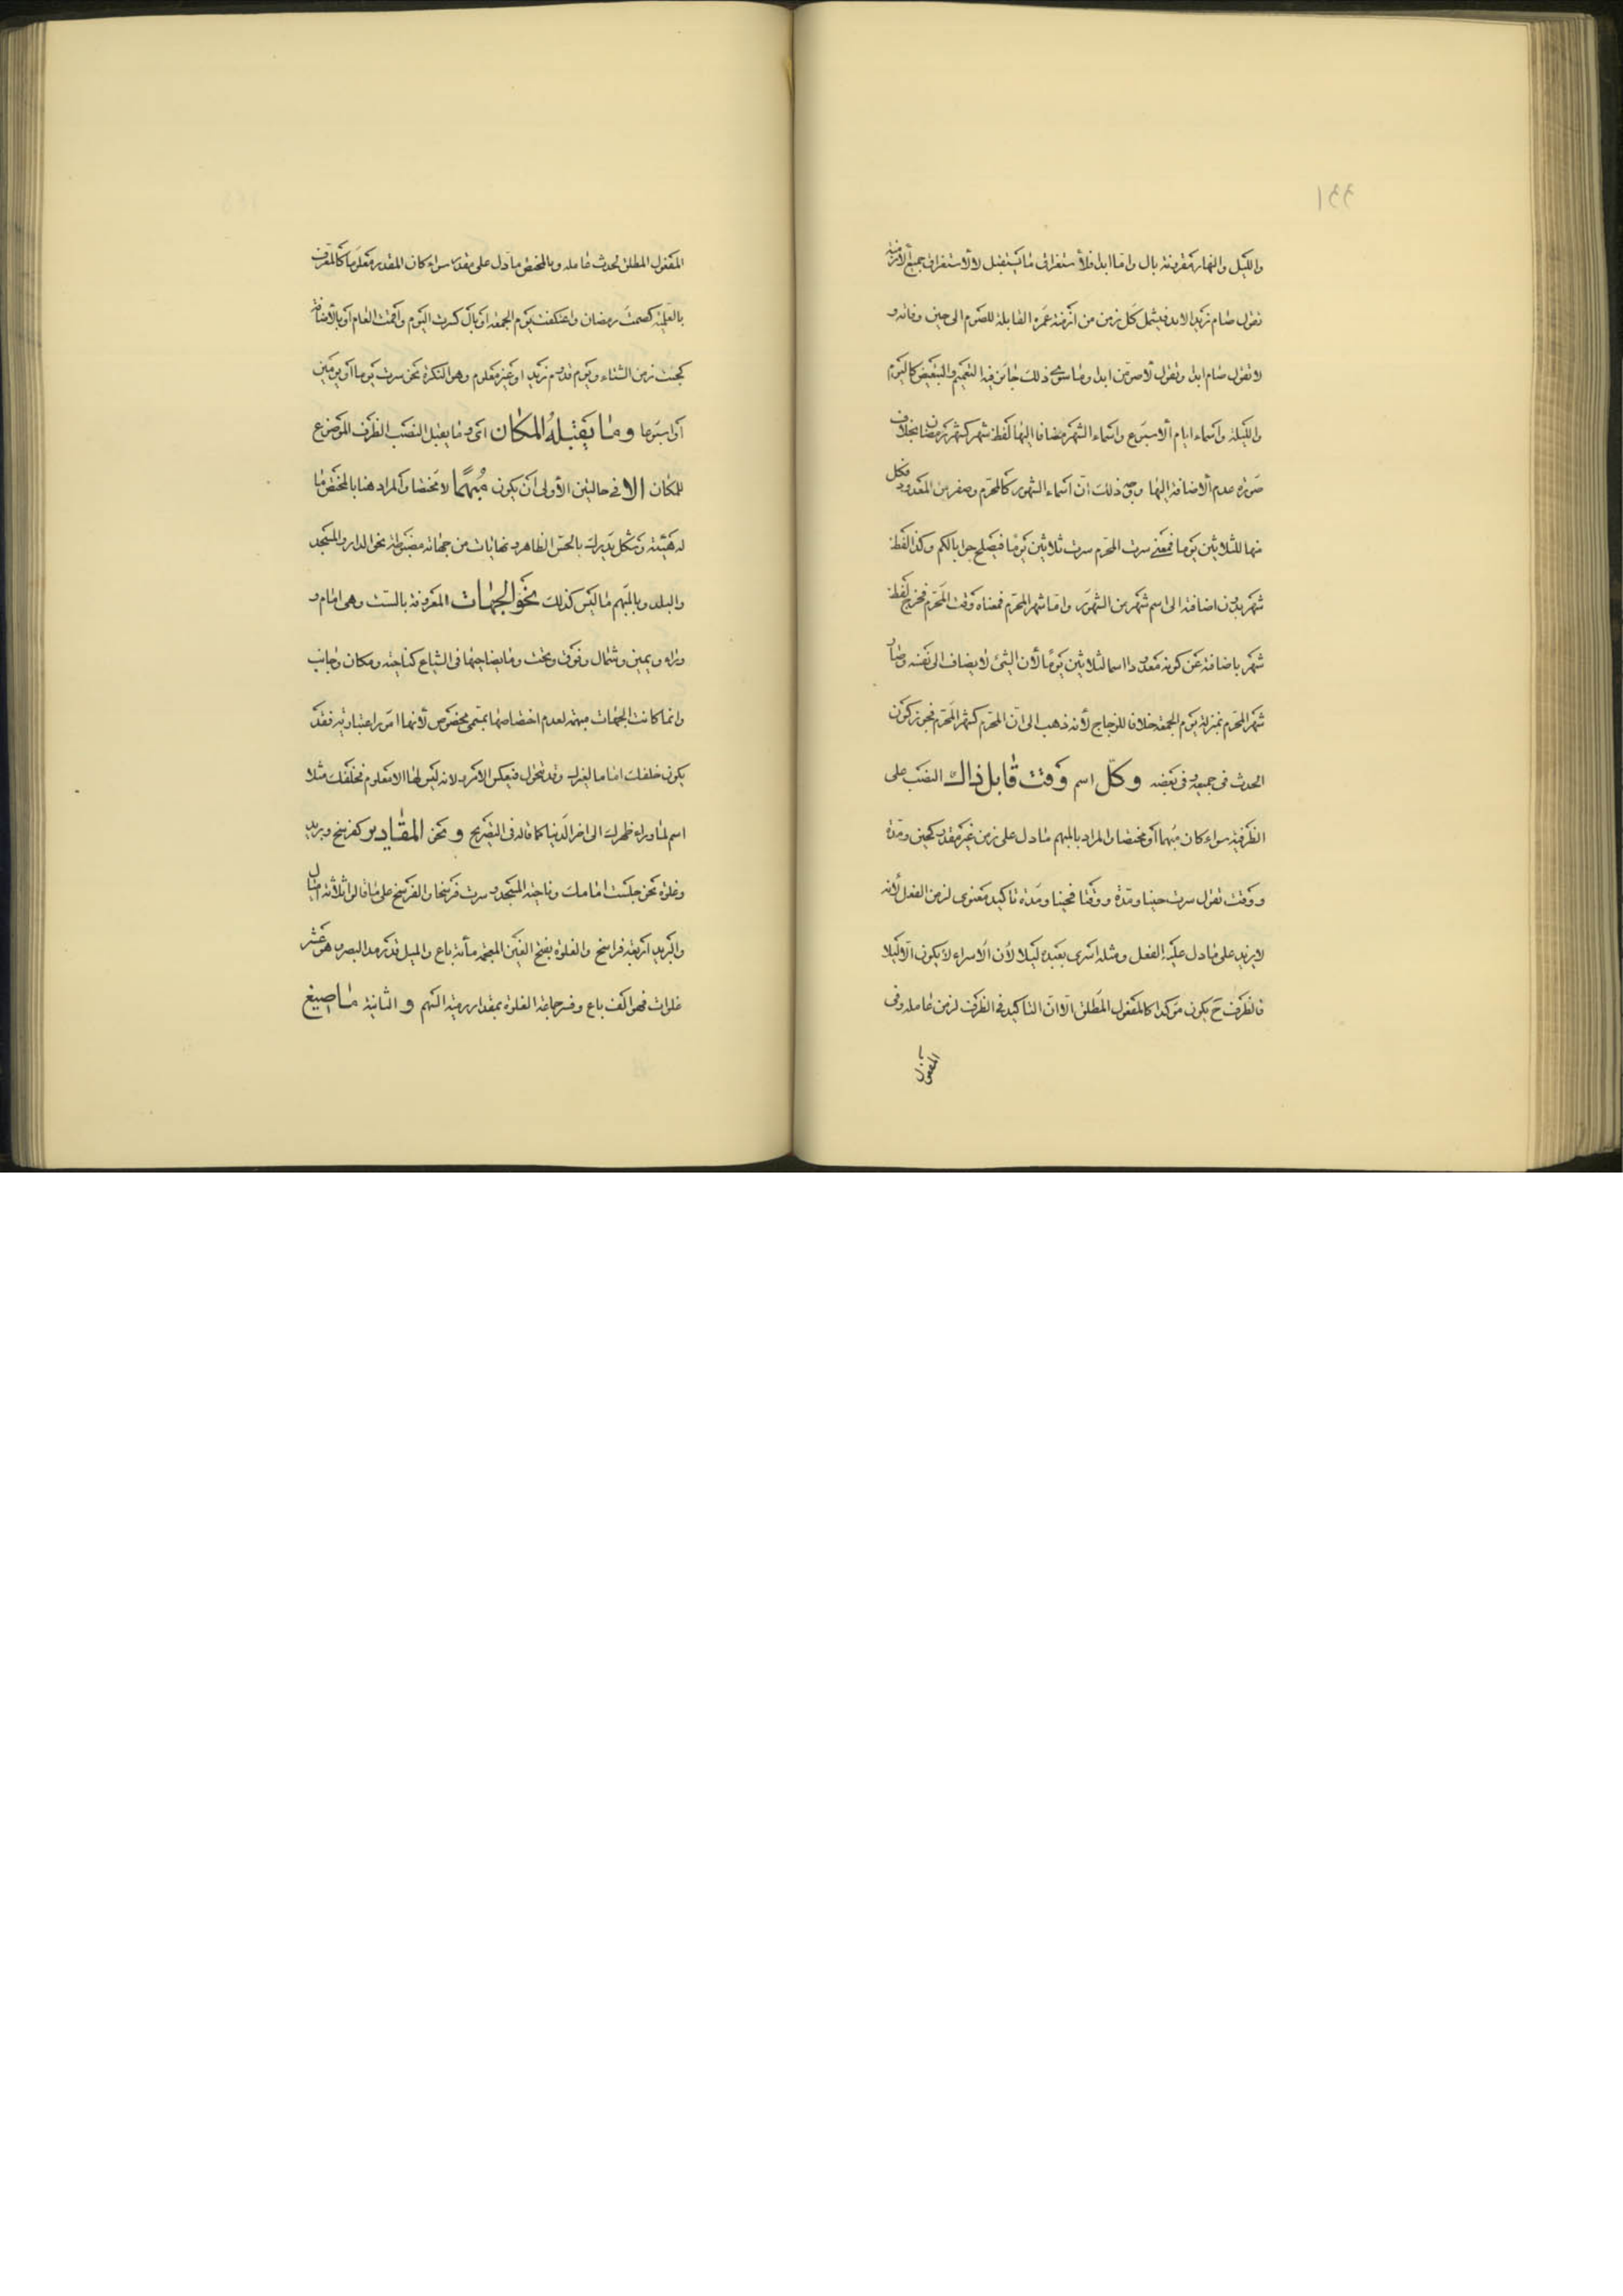 ١٤٤
والليل والنهار مقرونة بال واما ابدا فلاستغراق ما يستقبل لا لاستغراق جميع الازمنة
تقول صام زيد الابد فيشمل كل زمن من ازمنة عمره القابلة للصوم الى حين وفاته و
لا تقول صام ابدا وتقول لاصومن ابدا وما سوى ذلك جائز فيه التعميم والتبعيض كاليوم
والليلة واسماء ايام الاسبوع واسماء الشهر مضافا اليها لفظ شهر كشهر رمضان بخلاف
صورة عدم الاضافة اليها وجه ذلك ان اسماء الشهور كالمحرم وصفر من المعدود فكل
منها للثلاثين يوما فمعنى سرت المحرم سرت ثلاثين يوما فيصلح جوابا لكم وكذا لفظ
شهر بدون اضافة الى اسم شهر من الشهور واما شهر المحرم فمعناه وقت المحرم فخرج لفظ
شهر باضافة عن كونه معدودا اسما لثلاثين يوما لان الشئ لا يضاف الى نفسه وصار
شهر المحرم بمنزلة يوم الجمعة خلافا للزجاج لانه ذهب الى ان المحرم كشهر المحرم فجوز كون
الحدث فى جميعه وفى بعضه وكل اسم وقت قابل ذاك النصب على
الظرفية سواء كان مبهما او مختصا والمراد بالمبهم ما دل على زمن غير مقدر كحين ومدة
ووقت تقول سرت حينا ومدة ووقتا فحينا ومدة تاكيد معنوى لزمن الفعل لانه
لا يزيد على ما دل عليه الفعل ومثله اسرى بعبده ليلا لان الاسراء لا يكون الا ليلا
فالظرف ح يكون مؤكدا كالمفعول المطلق الا ان التاكيد فى الظرف لزمن عامله وفى
المفعول
المفعول المطلق لحدث عامله وبالمختص ما دل على مقدر سواء كان المقدر معلوما كالمعرف
بالعلمية كصمت رمضان واعتكفت يوم الجمعة او بال كسرت اليوم واقمت العام او بالاضافة
كجئت زمن الشتاء ويوم قدوم زيد او غير معلوم وهو النكرة نحو سرت يوما او يومين
او اسبوعا وما يقبله المكان اى وما يقبل النصب الظرف الموضوع
للمكان الا فى حالتين الاولى ان يكون مبهما لا مختصا والمراد هنا بالمختص ما
له هيئة وشكل يدرك بالحس الظاهر ونهايات من جهاته مضبوطة نحو الدار والمسجد
والبلد وبالمبهم ما ليس كذلك نحو الجهات المعروفة بالست وهى امام و
وراء ويمين وشمال وفوق وتحت وما يضاهيها فى الشياع كناحية ومكان وجانب
وانما كانت الجهات مبهمة لعدم اختصاصها بمسمى مخصوص لانها امور اعتبارية فقد
يكون خلفك اماما لغيرك وقد تتحول فينعكس الامر ولانه ليس لها امد معلوم فخلفك مثلا
اسم لما وراء ظهرك الى اخر الدنيا كما قاله فى التصريح ونحو المقادير كفرسخ وبريد
وغلوة نحو جلست امامك وناحية المسجد وسرت فرسخا والفرسخ على ما قالوا ثلاثة اميال
والبريد اربعة فراسخ والغلوة بفتح الغين المعجمة مأة باع والميل قدر مد البصر وهو عشر
غلوات فهو الف باع وفسر جماعة الغلوة بمقدار رمية السهم و الثانية ما صيغ